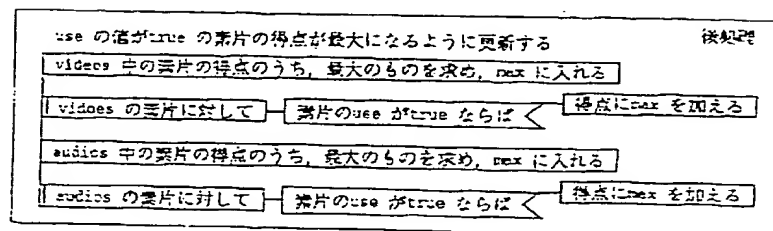 use の値がtrue の素片の得点が最大になるように更新する
後処理
videos 中の素片の得点のうち, 最大のものを求め, max に入れる
vidoes の素片に対して 素片のuse がtrue ならば 得点にmax を加える
audios 中の素片の得点のうち, 最大のものを求め, max に入れる
audios の素片に対して 素片のuse がtrue ならば 得点にmax を加える